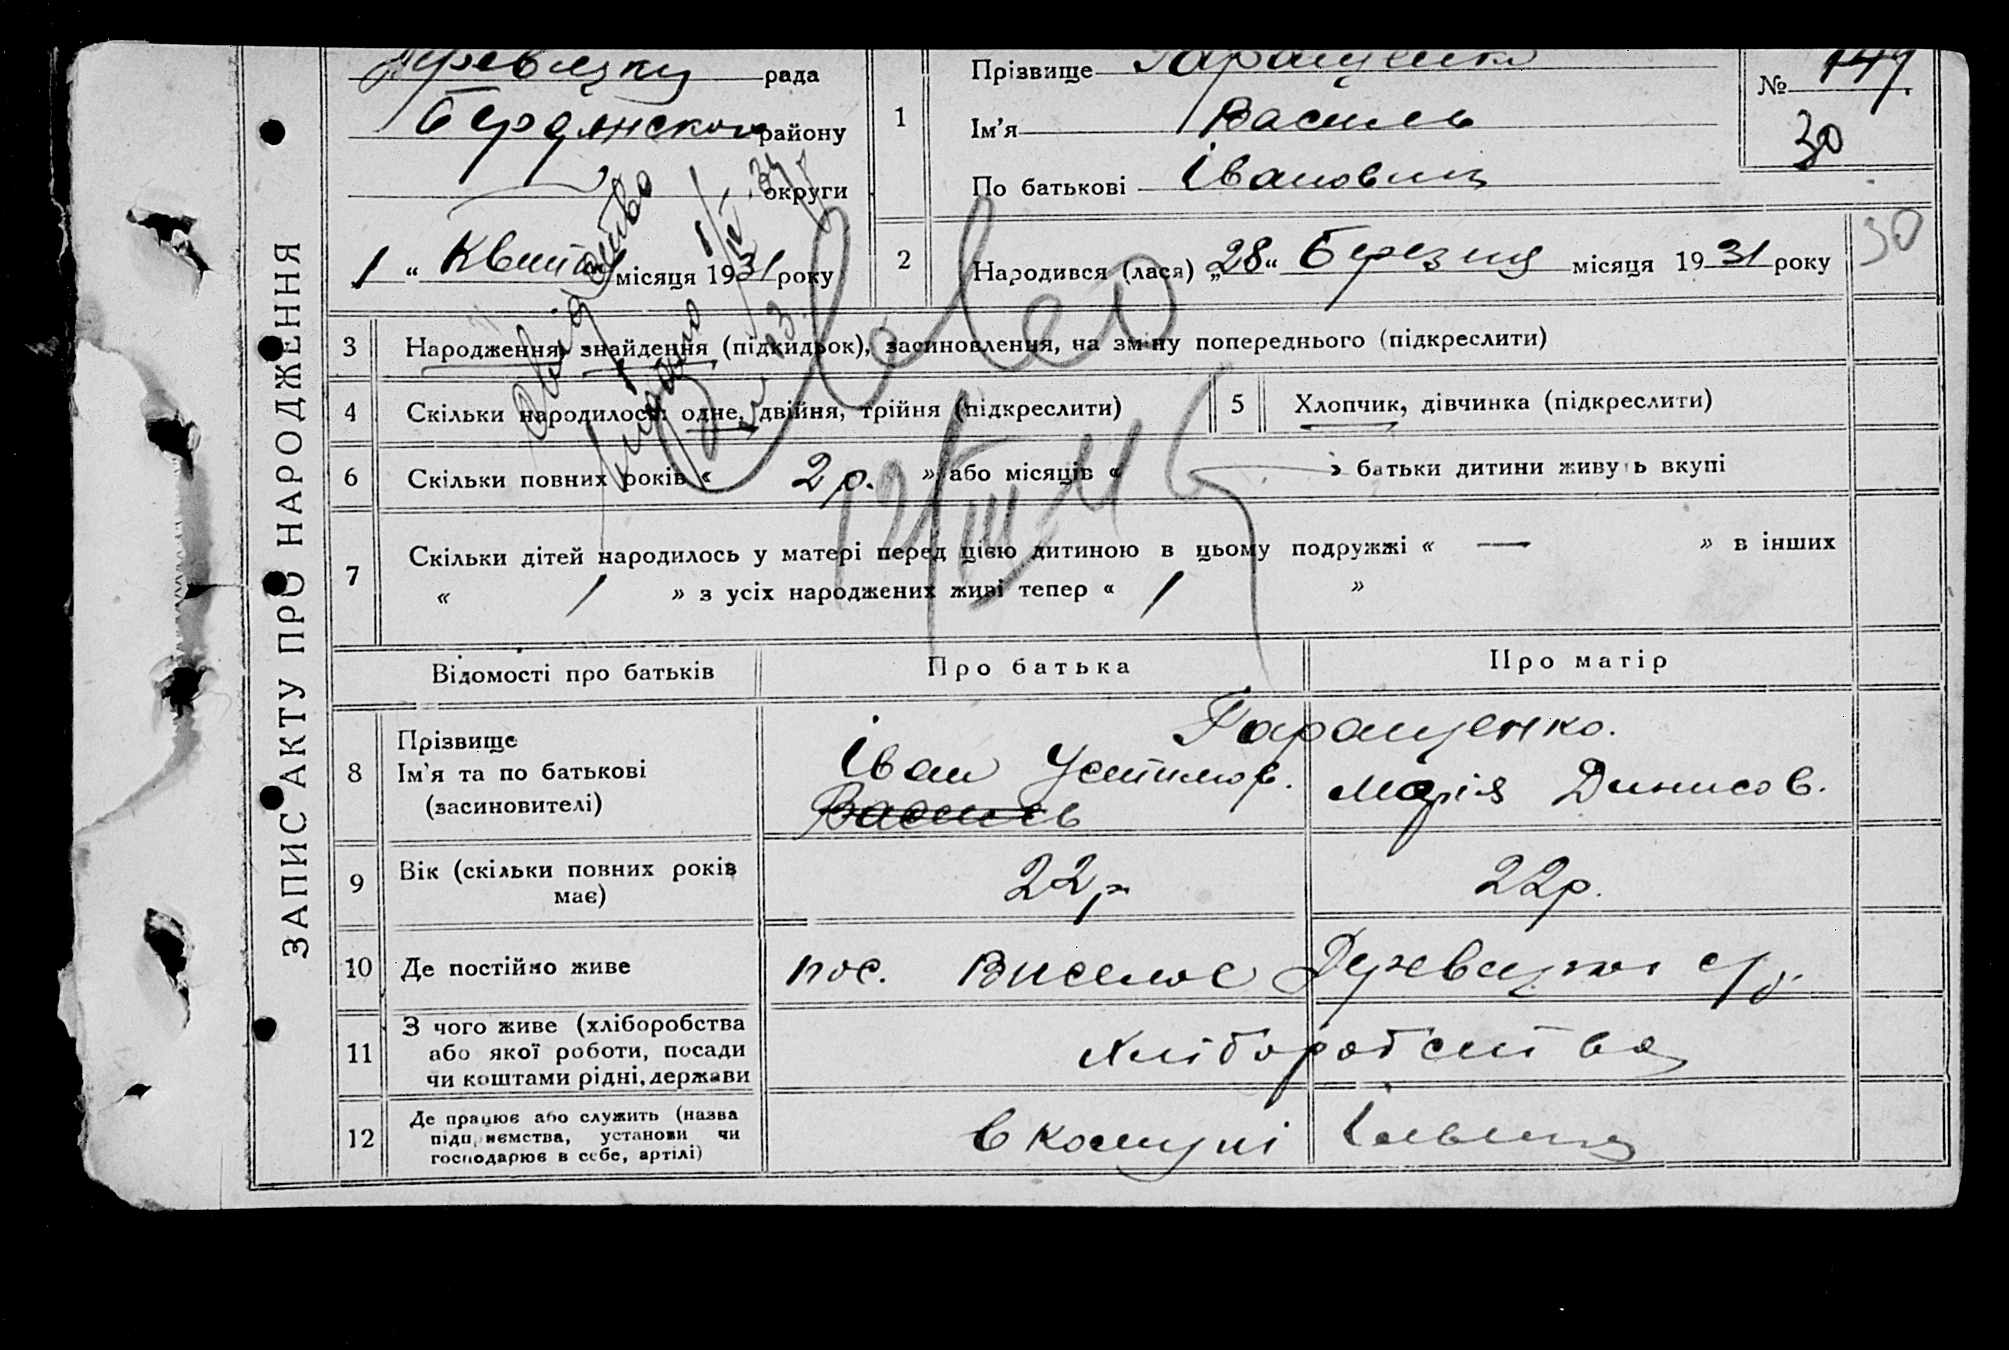 рада
Бердянского району
округи
1 Прізвище Гаращенко
Ім'я Василь
По батькові Івановиц
№ 147
30
1 “ Квитня місяця 1931 року
2 Народився (лася) „28“ Березня місяця 1931 року
30
ЗАПИС АКТУ ПРО НАРОДЖЕННЯ
3 Народження, знайдення (підкидьок), засиновлення, на зміну попереднього (підкреслити)
4 Скільки народилось: одне, двійня, трійня (підкреслити)
5 Хлопчик, дівчинка (підкреслити)
6 Скільки повних років « 2 р. » або місяців « » батьки дитини живуть вкупі
7 Скільки дітей народилось у матері перед цією дитиною в цьому подружжі « — » в інших
« 1 » з усіх народжених живі тепер « 1 »
Відомості про батьків Про батька Про матір
8 Прізвище Гаращенко.
Ім'я та по батькові Іван Устимов. Марія Динисов.
(засиновителі)
9 Вік (скільки повних років має) 22 р. 22 р.
10 Де постійно живе пос. Виселое с/р.
11 З чого живе (хліборобства
або якої роботи, посади
чи коштами рідні, держави
Хліборобства
12 Де працює або служить (назва
підприємства, установи чи
господарює в себе, артілі)
в комуні